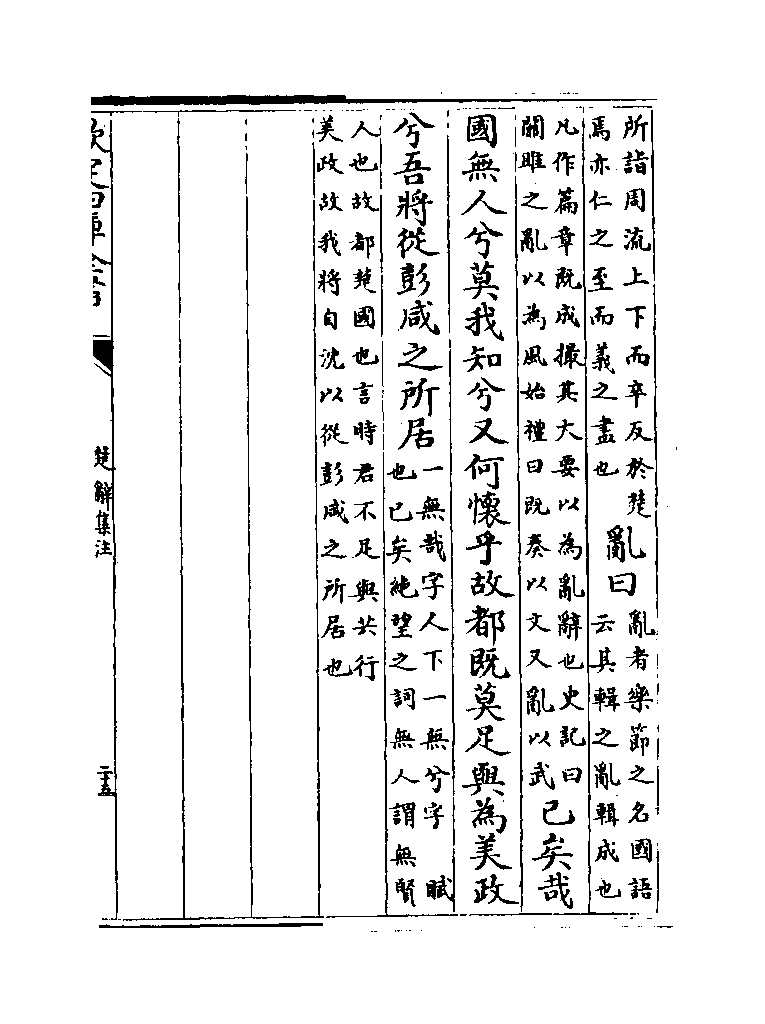 所詣周流上下而卒反於楚
焉亦仁之至而義之盡也
亂曰
亂者樂節之名國語
云其輯之亂輯成也
凡作篇章既成撮其大要以為亂辭也史記曰
關雎之亂以為風始禮曰既奏以文又亂以武
已矣哉
國無人兮莫我知兮又何懷乎故都既莫足與為美政
兮吾將從彭咸之所居
一無哉字人下一無兮字 賦
也已矣絶望之詞無人謂無賢
人也故都楚國也言時君不足與共行
美政故我將自沈以從彭咸之所居也
欽定四庫全書
楚辭集注
二十五